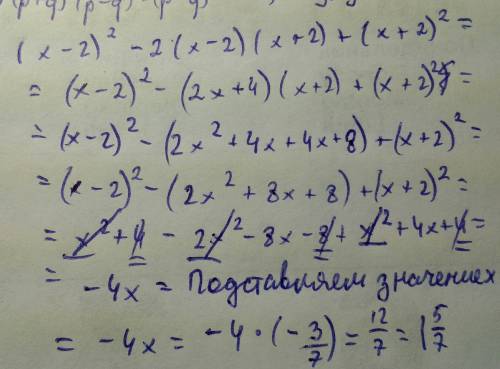 (x-2)² - 2(x-2)(x+2) + (x+2)² =
= (x-2)² - (2x+4)(x+2) + (x+2)² =
= (x-2)² - (2x² + 4x + 4x + 8) + (x+2)² =
= (x-2)² - (2x² + 8x + 8) + (x+2)² =
= x² + 4 - 2x² - 8x - 8 + x² + 4x + 4 =
= -4x = Подставляем значение x
= -4x = -4 · (-3/7) = 12/7 = 1 5/7